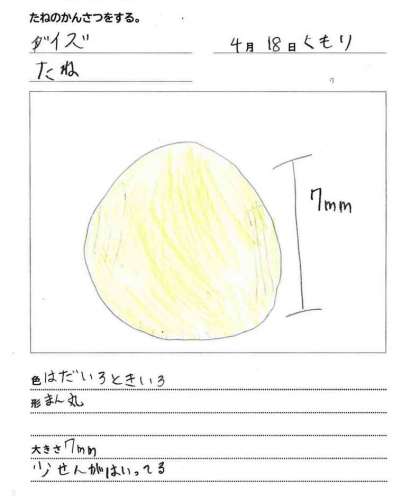 たねのかんさつをする。
ダイズ
4月18日くもり
たね
7mm
色はだいろときいろ
形まん丸
大きさ7mm
少せんがはいってる